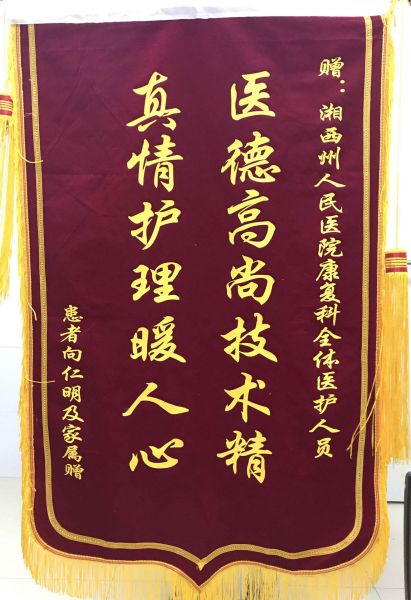 赠：湘西州人民医院康复科全体医护人员
医德高尚技术精
真情护理暖人心
患者向仁明及家属赠